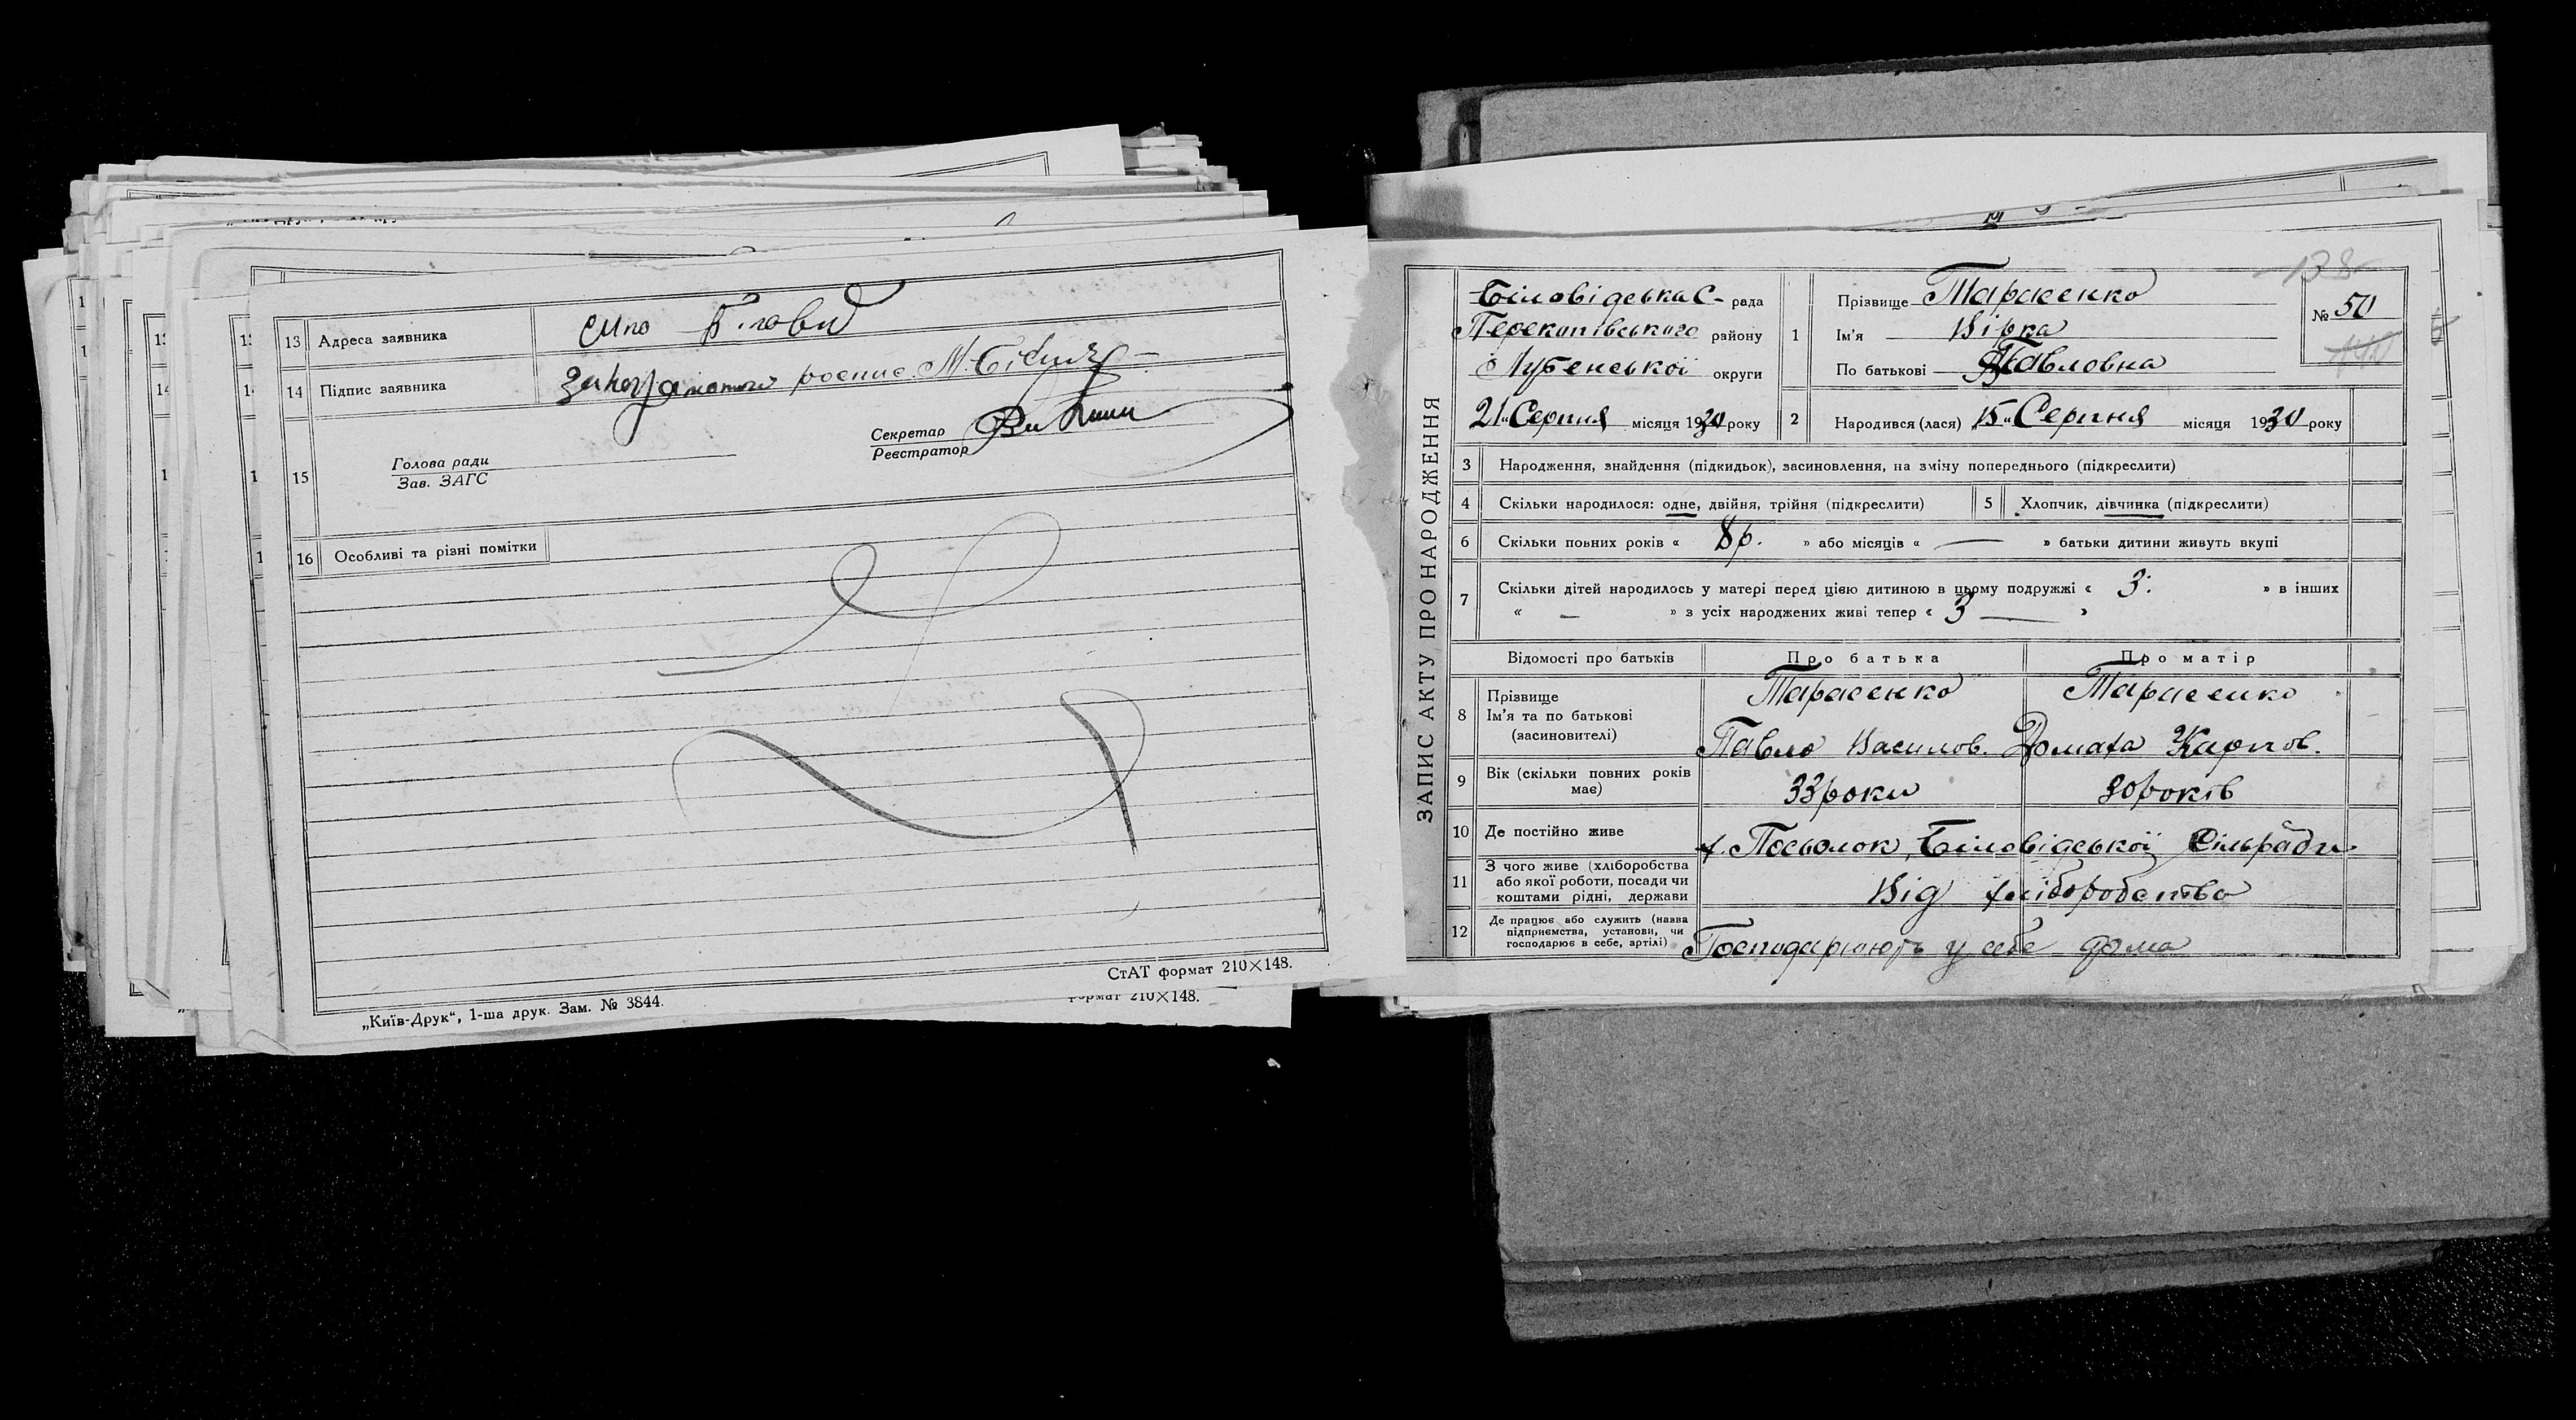 13 Адреса заявника
14 Підпис заявника
15 Голова ради
Зав. ЗАГС
Секретар
Реєстратор
16 Особливі та різні помітки
СтАТ формат 210×148.
„Київ-Друк“, 1-ша друк. Зам. № 3844.
формат 210×148.
ЗАПИС АКТУ ПРО НАРОДЖЕННЯ
Біловідська С- рада
Перекопівського району
Лубенської округи
21 „ Серпня місяця 1930 року
1 Прізвище Тарасенко
Ім’я Вірка
По батькові Павловна
№ 50
138
2 Народився (лася) 15 „ Серпня місяця 1930 року
3 Народження, знайдення (підкидьок), засиновлення, на зміну попереднього (підкреслити)
4 Скільки народилося: одне, двійня, трійня (підкреслити) 5 Хлопчик, дівчинка (підкреслити)
6 Скільки повних років « 8 р. » або місяців « — » батьки дитини живуть вкупі
7 Скільки дітей народилось у матері перед цією дитиною в цьому подружжі « 3: » в інших
« — » з усіх народжених живі тепер « 3 — »
Відомості про батьків Про батька Про матір
8 Прізвище Тарасенко Тарасенко
Ім’я та по батькові
(засиновителі) Павло Василов. Домаха Карпов.
9 Вік (скільки повних років має) 33 роки 30 років
10 Де постійно живе х. Посьолок, Біловідської Сільради
11 З чого живе (хліборобства
або якої роботи, посади чи
коштами рідні, держави Від хліборобства
12 Де працює або служить (назва
підприємства, установи, чи
господарює в себе, артілі) Господарюють у себе дома